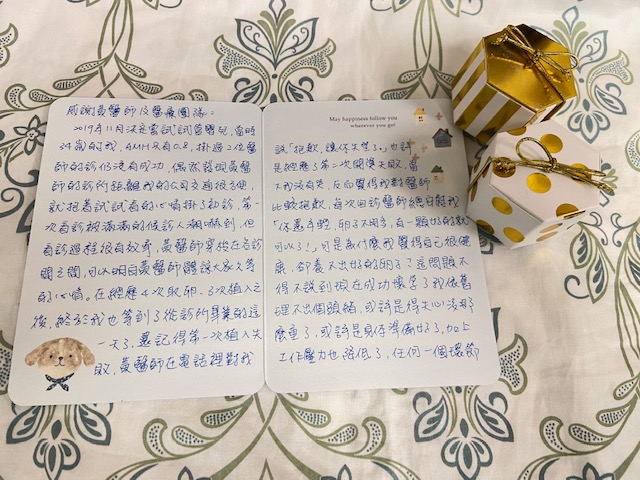 感謝黃醫師及醫療團隊：
2019年11月決定嘗試試管嬰兒，當時
34歲的我，AMH只有0.8，掛過2位醫
師的診仍沒有成功，偶然發現黃醫
師的診所距離我的公司交通很方便，
就抱著試試看的心情掛了初診，第一
次看診被滿滿的候診人潮嚇到，但
看診過程很有效率，黃醫師穿梭在各診
間之間，可以明白黃醫師體諒大家久等
的心情。在經歷4次取卵、3次植入之
後，終於我也等到了從診所畢業的這
一天了，還記得第一次植入失
敗，黃醫師在電話裡對我
May happiness follow you
wherever you go!
說「抱歉，讓你失望了。」也許
是經歷了第二次開獎失敗，當
下我沒有哭，反而覺得我對醫師
比較抱歉，每次回診醫師總安慰我
「你還年輕，卵子不用多，有一顆好的就
可以了！」可是為什麼我覺得自己很健
康，卻養不出好的卵子？這問題不
得不說到現在成功懷孕了我依舊
理不出個頭緒，或許是得失心沒那
麼重了，或許是身體準備好了，加上
工作壓力也降低了，任何一個環節